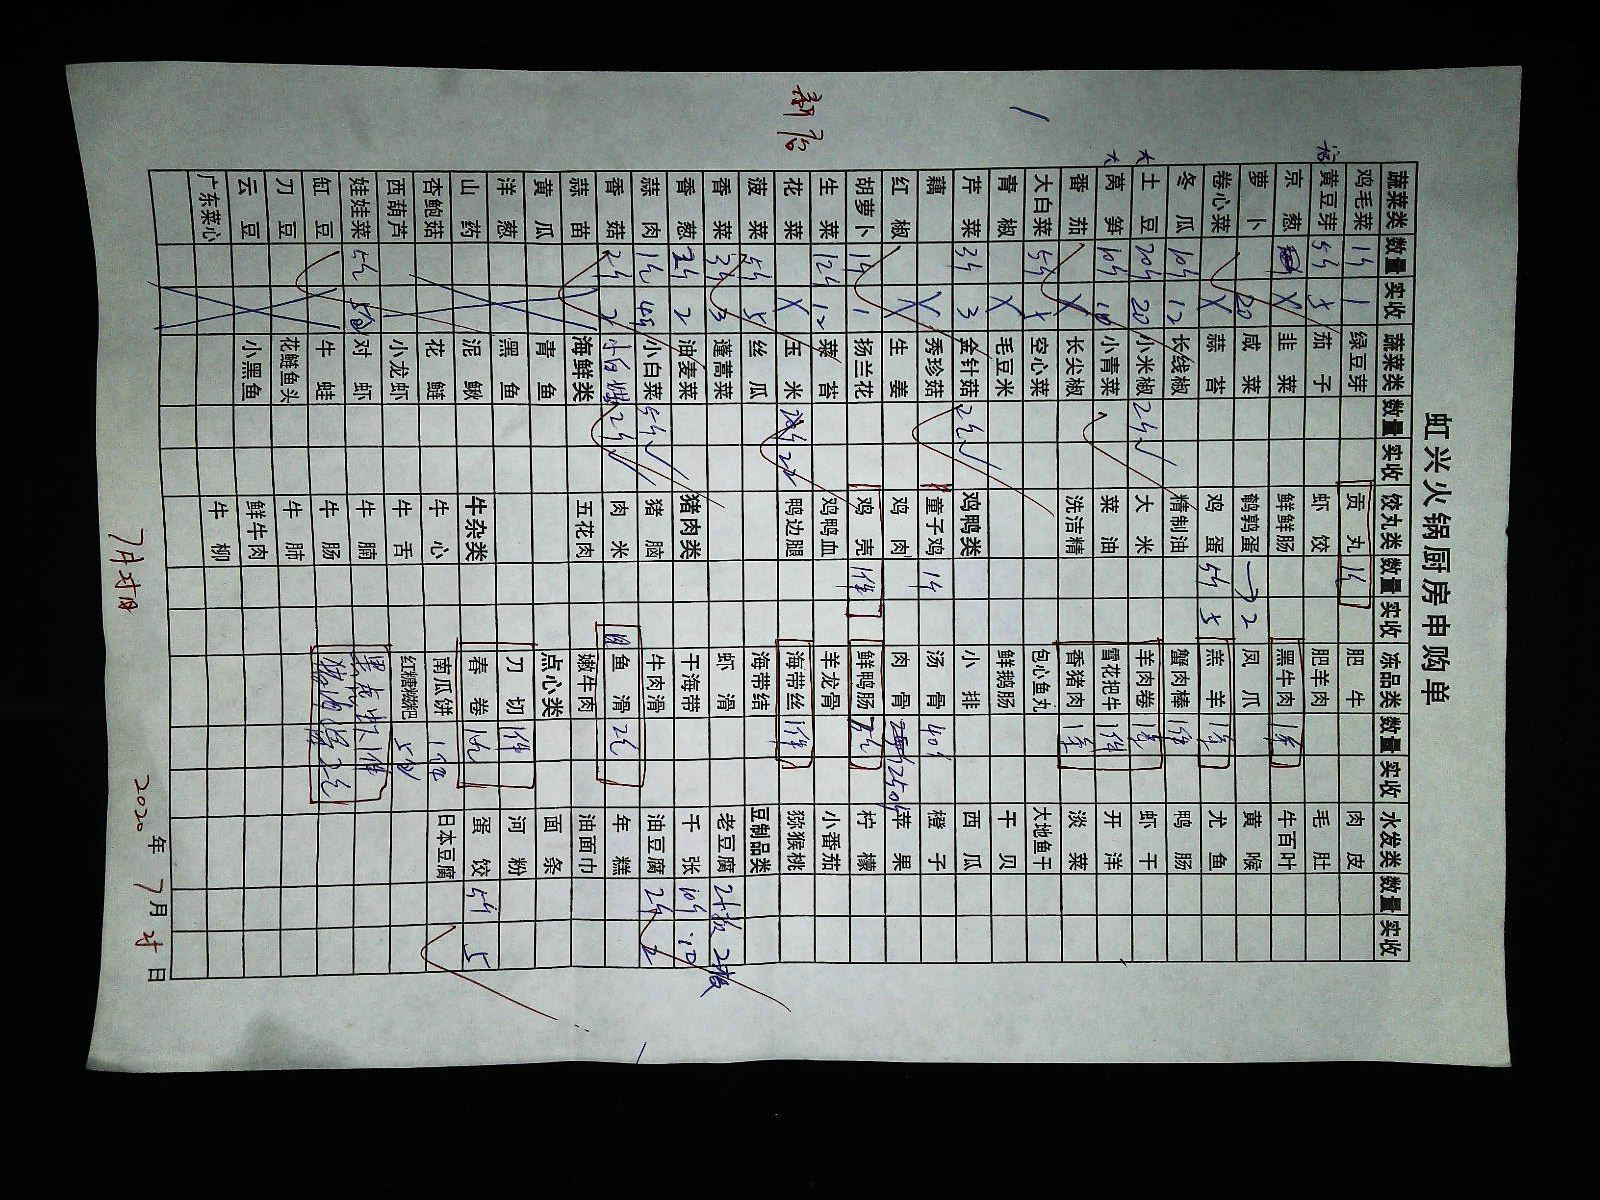 虹兴火锅厨房申购单
新店
蔬菜类 数量 实收 蔬菜类 数量 实收 饺丸类 数量 实收 冻品类 数量 实收 水发类 数量 实收
鸡毛菜 1斤 1 绿豆芽 贡丸 1件 肥牛 肉皮
黄豆芽 5斤 5 茄子 虾饺 肥羊肉 毛肚
京葱 X 韭菜 鲜鲜肠 黑牛肉 牛百叶
萝卜 20 咸菜 鹌鹑蛋 2 凤爪 黄喉
卷心菜 X 蒜苔 鸡蛋 5斤 5 羔羊 尤鱼
冬瓜 10斤 12 长线椒 精制油 蟹肉棒 1件 鸭肠
大 土豆 20斤 20 小米椒 2斤 大米 羊肉卷 虾干
大 莴笋 10斤 10 小青菜 菜油 雪花把牛 1件 开洋
番茄 X 长尖椒 洗洁精 香猪肉 淡菜
大白菜 5斤 5 空心菜 包心鱼丸 大地鱼干
青椒 X 毛豆米 鲜鹅肠 干贝
芹菜 3斤 3 金针菇 2包 鸡鸭类 小排 西瓜
藕 X 秀珍菇 童子鸡 1斤 汤骨 40斤 橙子
红椒 X 生姜 鸡肉 肉骨 250斤 苹果
胡萝卜 1斤 1 扬兰花 鸡壳 1件 鲜鸭肠 柠檬
生菜 12斤 12 菜苔 鸡鸭血 羊龙骨 小番茄
花菜 X 玉米 鸭边腿 海带丝 1件 猕猴桃
菠菜 5斤 5 丝瓜 海带结 豆制品类
香菜 3斤 3 蓬蒿菜 虾滑 老豆腐 2板 2板
香葱 2斤 2 油麦菜 猪肉类 干海带 千张 10斤 10
蒜肉 小白菜 5斤 猪脑 牛肉滑 油豆腐 2斤 2
香菇 2斤 2 2斤 肉米 鱼滑 2包 年糕
蒜苗 海鲜类 五花肉 嫩牛肉 油面巾
黄瓜 青鱼 点心类 面条
洋葱 黑鱼 刀切 1件 河粉
山药 泥鳅 牛杂类 春卷 1包 蛋饺 5斤 5
杏鲍菇 花鲢 牛心 南瓜饼 日本豆腐
西葫芦 小龙虾 牛舌 红糖糍粑
娃娃菜 对虾 牛腩
缸豆 牛蛙 牛肠
刀豆 花鲢鱼头 牛肺
云豆 小黑鱼 鲜牛肉
广东菜心 牛柳
2020年7月 日